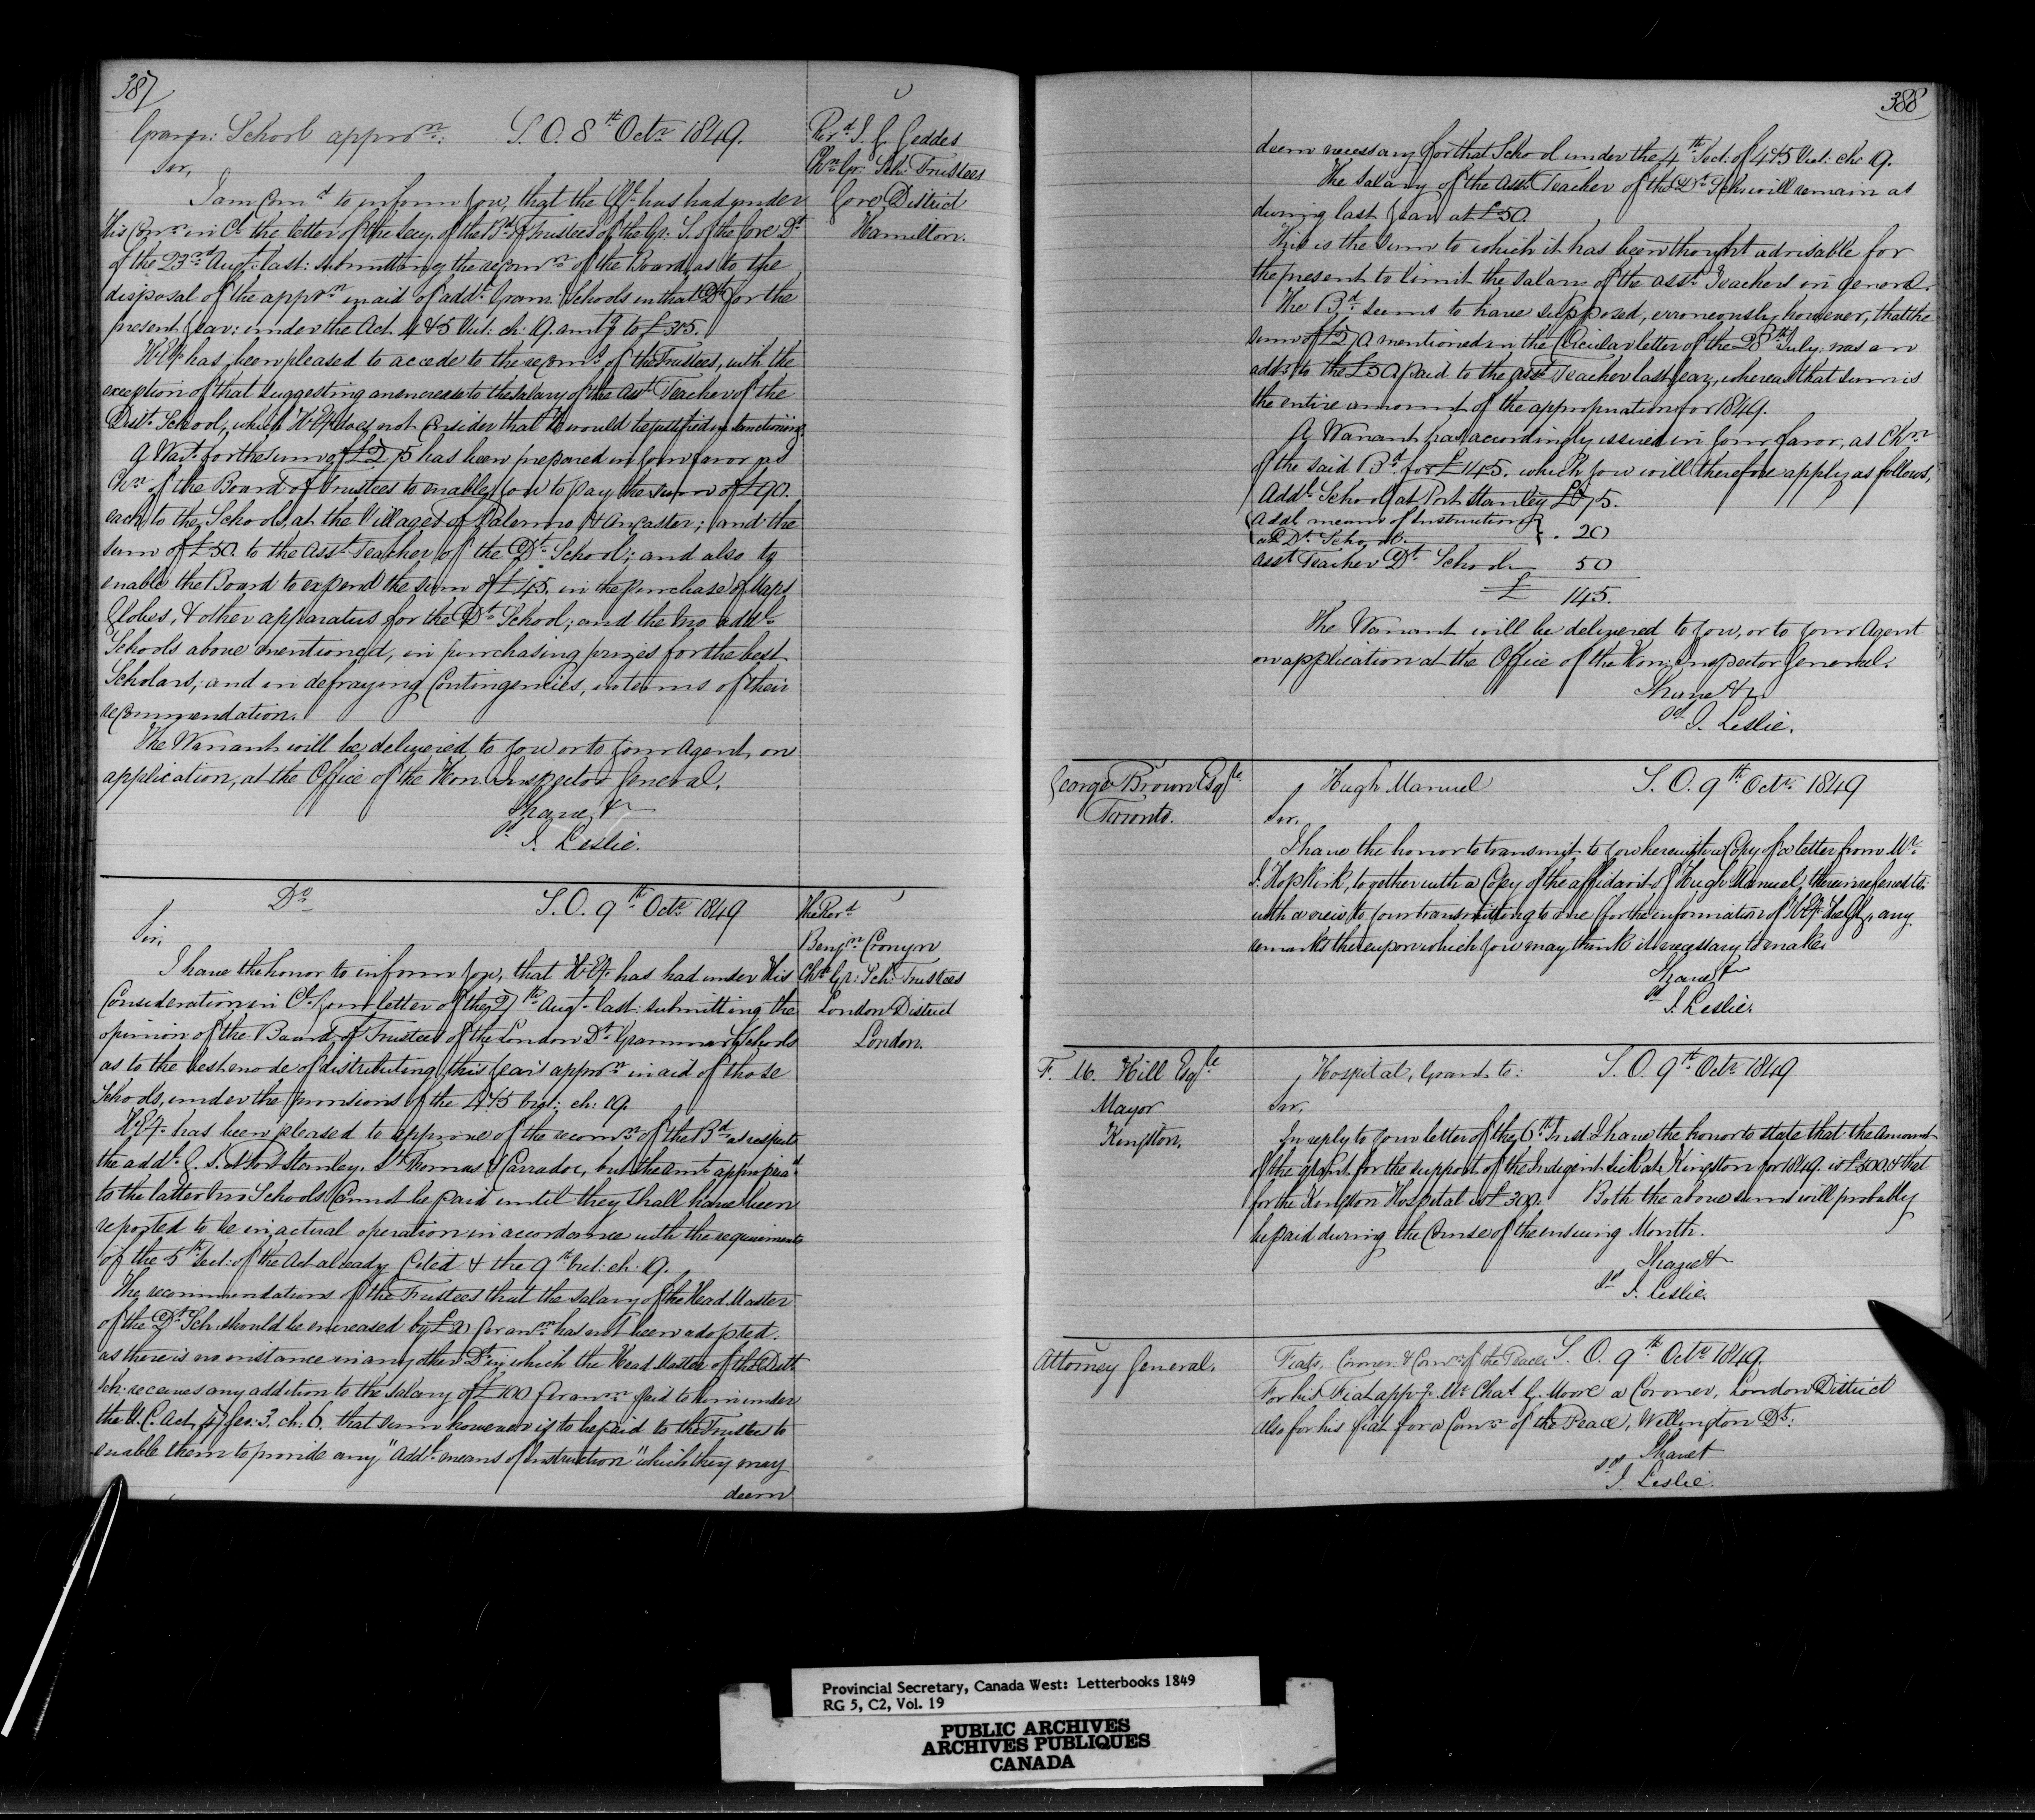 387
Gramr: School appron: S. O. 8th Octr 1849.
Revd J. G. Geddes
Chn Gr: Sch: Trustees
Gore District
Hamilton.
Sir,
I am Comd to inform you, that the has had under
His Conn in Cl the letter of the Secy. of the Bd of Trustees of the Gr: S. of the Gore Dt
of the 23rd Augt last: submitting the recomn of the Board as to the
disposal of the appron in aid of addl Gram: Schools in that Dt for the
present year: under the Act 4 & 5 Vict: ch: 19. amtg to £305.
H.Ey. has been pleased to accede to the recoms of the Trustees, with the
exception of that suggesting an encrease to the salary of the Asst Teacher of the
Dist: School, which H.Ey. does not Consider that He would be justified in sanctioning.
A Wart for the sum of £275 has been prepared in your favor as
Chn of the Board of Trustees to enable you to pay the sum of £90.
each to the Schools, at the Villages of Palermo & Ancaster; and the
sum of £50. to the Asst Teacher of the Dt School; and also to
enable the Board to expend the sum of £45. in the purchase of Maps
Globes, & other apparatus for the Dt School; and the two addl
Schools above mentioned, in purchasing prizes for the best
Scholars; and in defraying Contingencies, in terms of their
recommendation.
The Warrant will be delivered to you or to your Agent, on
application, at the Office of the Hon. Inspector General.
I have &
sd J. Leslie.
Do S. O. 9th Octr 1849
The Revd
Benjn Cronyn
Chn Gr: Sch: Trustees
London District
London.
Sir,
I have the honor to inform you, that H.Ey. has had under His
Consideration in Cl your letter of the 27th Augt last: submitting the
opinion of the Board of Trustees of the London Dt Grammar Schools
as to the best mode of distributing this year's appron in aid of those
Schools, under the provisions of the 4 & 5 Vict: ch: 19.
H.Ey. has been pleased to approve of the recomn of the Bd as respects
the addl G. S. at Port Stanley, St Thomas & Carradoc, but the amt appropriad
to the latter two Schools Cannot be paid until they shall have been
reported to be in actual operation in accordance with the requirements
of the 5th Sect: of the Act already Cited & the 9th Vict: ch: 19.
The recommendations of the Trustees that the salary of the Head Master
of the Dt Sch. should be encreased by £20 per ann has not been adopted.
as there is no instance in any other Dt in which the Head Master of the Distt
Sch: receives any addition to the salary of £100 per ann paid to him under
the U.C. Act, 47 Geo: 3. ch: 6. that sum however is to be paid to the Trustees to
enable them to provide any "Addl means of Instruction" which they may
deem
388
deem necessary for that School under the 4th Sect: of 4 & 5 Vict: ch: 19.
The Salary of the Asst Teacher of the Dt Sch: will remain as
during last year at £50.
This is the sum to which it has been thought advisable for
the present to limit the salary of the asst Teachers in general.
The Bd seems to have supposed, erroneously, however, that the
sum of £250 mentioned in the Circular letter of the 28th July: was an
addn to the £50 paid to the asst Teacher last year, whereas that sum is
the entire amount of the appropriation for 1849.
A Warrant has accordingly issued in your favor, as Chn
of the said Bd for £145. which you will therefore apply as follows,
Addl School at Port Stanley £75.
Addl means of Instruction
at Dt School. } . 20
asst Teacher Dt School 50
£ 145.
The Warrant will be delivered to you, or to your Agent
on application at the Office of the Hon: Inspector General.
I have &c
sd J. Leslie.
George Brown Esqre
Toronto.
Hugh Manuel S. O. 9th Octr 1849
Sir,
I have the honor to transmit to you herewith a Copy of a letter from Mr
J. Hopkirk, together with a Copy of the affidavit of Hugh Manuel, therein referred to:
with a view to your transmitting to me for the information of H.Ey. the G.G., any
remarks thereupon which you may think it necessary to make.
I have &
sd J. Leslie.
F. M. Hill Esqre
Mayor
Kingston.
Hospital, Grants to: S. O. 9th Octr 1849
Sir,
In reply to your letter of the 6th Inst I have the honor to state that the Amount
of the grant for the support of the Indigent Sick at Kingston for 1849. is £500. & that
for the Kingston Hospital is £300. Both the above sums will probably
be paid during the Course of the ensuing Month.
I have &
sd J. Leslie.
Attorney General.
Fiats, Coroner. & Comn of the Peace S. O. 9th Octr 1849.
For his Fiat appg Mr Chas G. Moore a Coroner, London District
Also for his fiat for a Comn of the Peace, Wellington Dt:
I have &
sd J. Leslie.
Provincial Secretary, Canada West: Letterbooks 1849
RG 5, C2, Vol. 19
PUBLIC ARCHIVES
ARCHIVES PUBLIQUES
CANADA